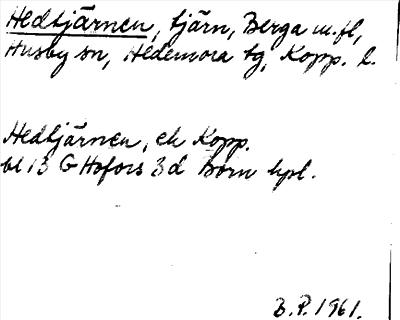 Hedtjärnen, tjärn, Berga m.fl,
Husby sn, Hedemora tg, Kopp. l.
Hedtjärnen, ek Kopp.
bl 13 G Hofors 3d Born hpl.
B.P. 1961.